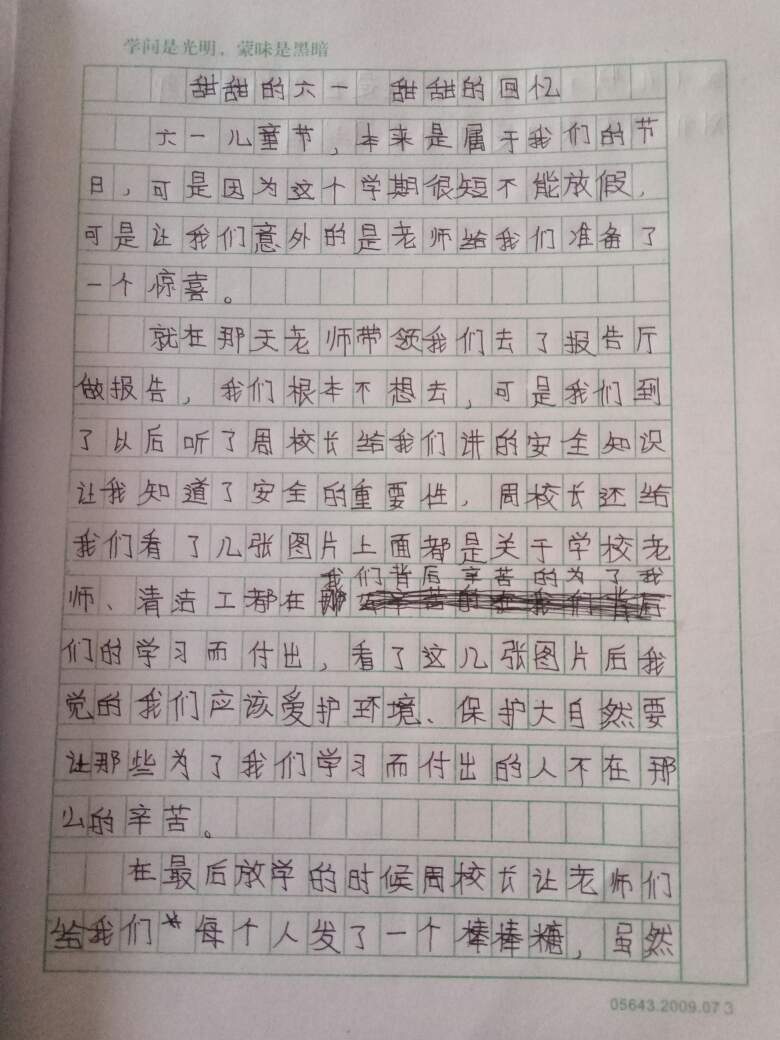 学问是光明，蒙昧是黑暗
甜甜的六一 甜甜的回忆
六一儿童节，本来是属于我们的节
日，可是因为这个学期很短不能放假，
可是让我们意外的是老师给我们准备了
一个惊喜。
就在那天老师带领我们去了报告厅
做报告，我们根本不想去，可是我们到
了以后听了周校长给我们讲的安全知识
让我知道了安全的重要性，周校长还给
我们看了几张图片上面都是关于学校老
我们背后辛苦的为了我
师、清洁工都在
们的学习而付出，看了这几张图片后我
觉的我们应该爱护环境、保护大自然要
让那些为了我们学习而付出的人不在那
么的辛苦。
在最后放学的时候周校长让老师们
给我们每个人发了一个棒棒糖，虽然
05643.2009.07 3